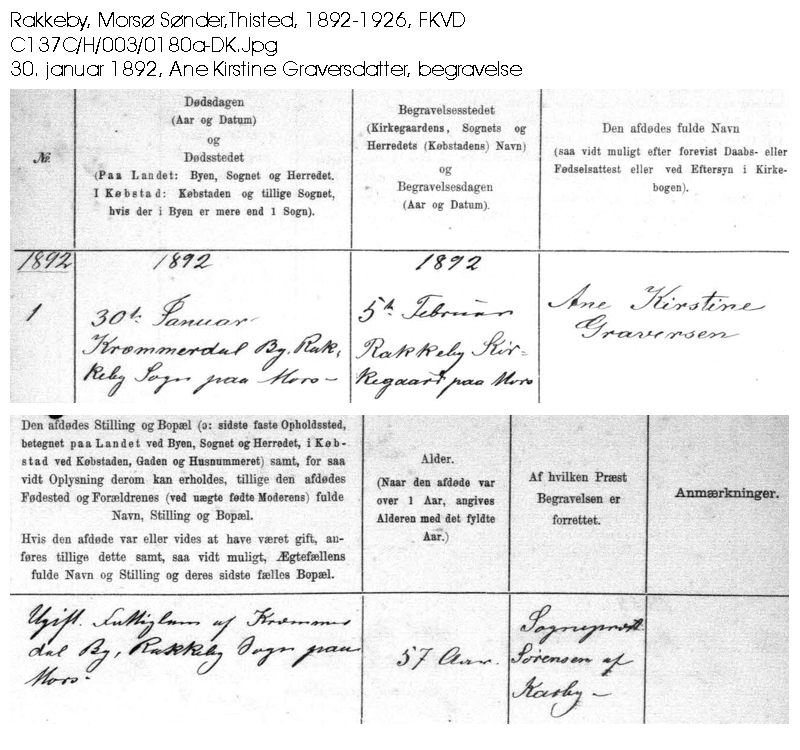 Rakkeby, Morsø Sønder,Thisted, 1892-1926, FKVD
C137C/H/003/0180a-DK.Jpg
30. januar 1892, Ane Kirstine Graversdatter, begravelse
№
Dødsdagen
(Aar og Datum)
og
Dødsstedet
(Paa Landet: Byen, Sognet og Herredet.
I Købstad: Købstaden og tillige Sognet,
hvis der i Byen er mere end 1 Sogn).
Begravelsesstedet
(Kirkegaardens, Sognets og
Herredets (Købstadens) Navn)
og
Begravelsesdagen
(Aar og Datum).
Den afdødes fulde Navn
(saa vidt muligt efter forevist Daabs- eller
Fødselsattest eller ved Eftersyn i Kirke-
bogen).
1892
1
1892
30te Januar
Krømmerdal By. Rak-
keby Sogn paa Mors -
1892
5te Februar
Rakkeby Kir-
kegaard paa Mors
Ane Kirstine
Graversen
Den afdødes Stilling og Bopæl (ɔ: sidste faste Opholdssted,
betegnet paa Landet ved Byen, Sognet og Herredet, i Køb-
stad ved Købstaden, Gaden og Husnummeret) samt, for saa
vidt Oplysning derom kan erholdes, tillige den afdødes
Fødested og Forældrenes (ved uægte fødte Moderens) fulde
Navn, Stilling og Bopæl.
Hvis den afdøde var eller vides at have været gift, an-
føres tillige dette samt, saa vidt muligt, Ægtefællens
fulde Navn og Stilling og deres sidste fælles Bopæl.
Alder.
(Naar den afdøde var
over 1 Aar, angives
Alderen med det fyldte
Aar.)
Af hvilken Præst
Begravelsen er
forrettet.
Anmærkninger.
Ugift. Fattiglem af Krømmer
dal By, Rakkeby Sogn paa
Mors -
57 Aar.
Sognepræst
Sørensen af
Karby -